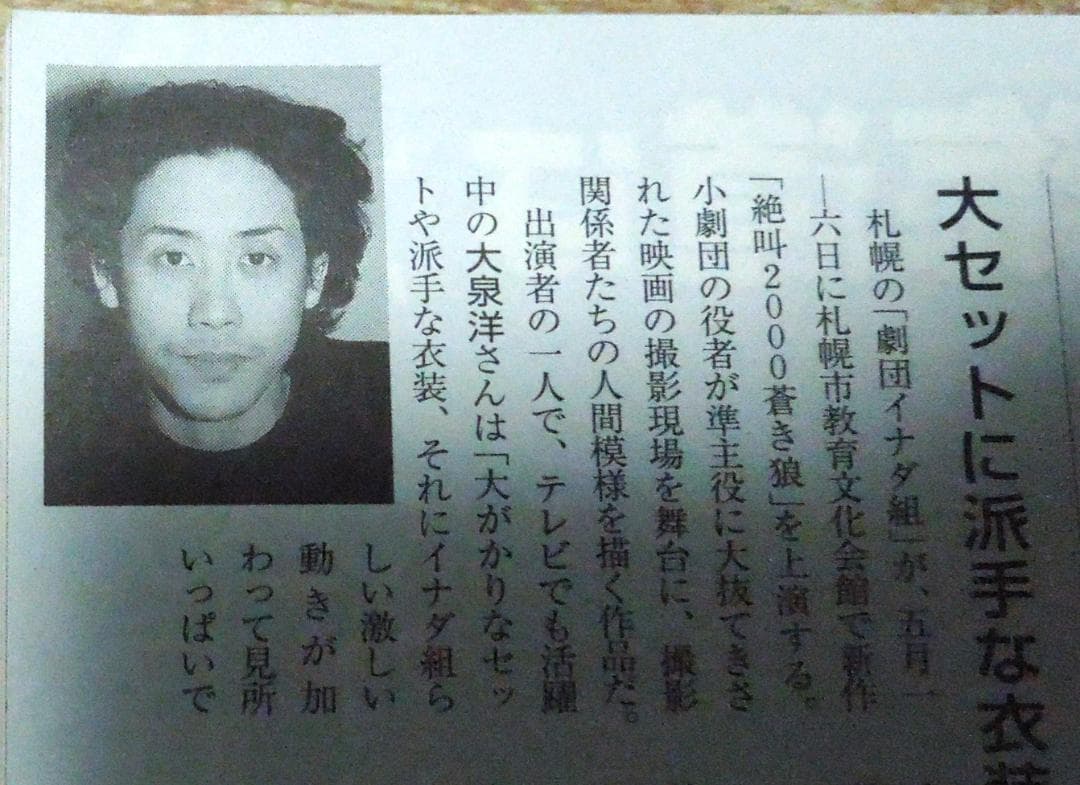 大セットに派手な衣装
札幌の「劇団イナダ組」が、五月一
―六日に札幌市教育文化会館で新作
「絶叫2000蒼き狼」を上演する。
小劇団の役者が準主役に大抜てきさ
れた映画の撮影現場を舞台に、撮影
関係者たちの人間模様を描く作品だ。
出演者の一人で、テレビでも活躍
中の大泉洋さんは「大がかりなセッ
トや派手な衣装、それにイナダ組ら
しい激しい
動きが加
わって見所
いっぱいで